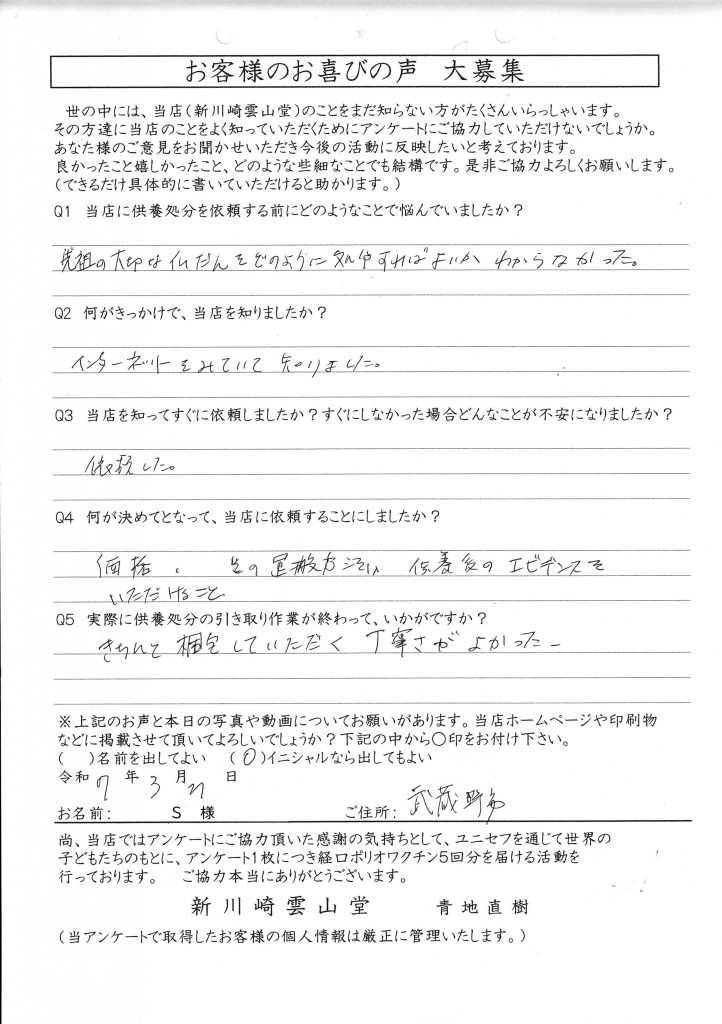 お客様のお喜びの声 大募集
世の中には、当店(新川崎雲山堂)のことをまだ知らない方がたくさんいらっしゃいます。
その方達に当店のことをよく知っていただくためにアンケートにご協力していただけないでしょうか。
あなた様のご意見をお聞かせいただき今後の活動に反映したいと考えております。
良かったこと嬉しかったこと、どのような些細なことでも結構です。是非ご協力よろしくお願いします。
(できるだけ具体的に書いていただけると助かります。)
Q1 当店に供養処分を依頼する前にどのようなことで悩んでいましたか?
先祖の大切な仏だんをどのように処分すればよいか わからなかった。
Q2 何がきっかけで、当店を知りましたか?
インターネットをみていて 知りました。
Q3 当店を知ってすぐに依頼しましたか?すぐにしなかった場合どんなことが不安になりましたか?
依頼した。
Q4 何が決めてとなって、当店に依頼することにしましたか?
価格、 の運搬方法、供養後のエビデンスを
いただけること
Q5 実際に供養処分の引き取り作業が終わって、いかがですか?
きちんと梱包していただく 丁寧さがよかった
※上記のお声と本日の写真や動画についてお願いがあります。当店ホームページや印刷物
などに掲載させて頂いてよろしいでしょうか?下記の中から○印をお付け下さい。
( )名前を出してよい (○)イニシャルなら出してもよい
令和 7 年 3 月 日
お名前: S 様 ご住所: 武蔵野市
尚、当店ではアンケートにご協力頂いた感謝の気持ちとして、ユニセフを通じて世界の
子どもたちのもとに、アンケート1枚につき経口ポリオワクチン5回分を届ける活動を
行っております。 ご協力本当にありがとうございます。
新川崎雲山堂 青地直樹
(当アンケートで取得したお客様の個人情報は厳正に管理いたします。)